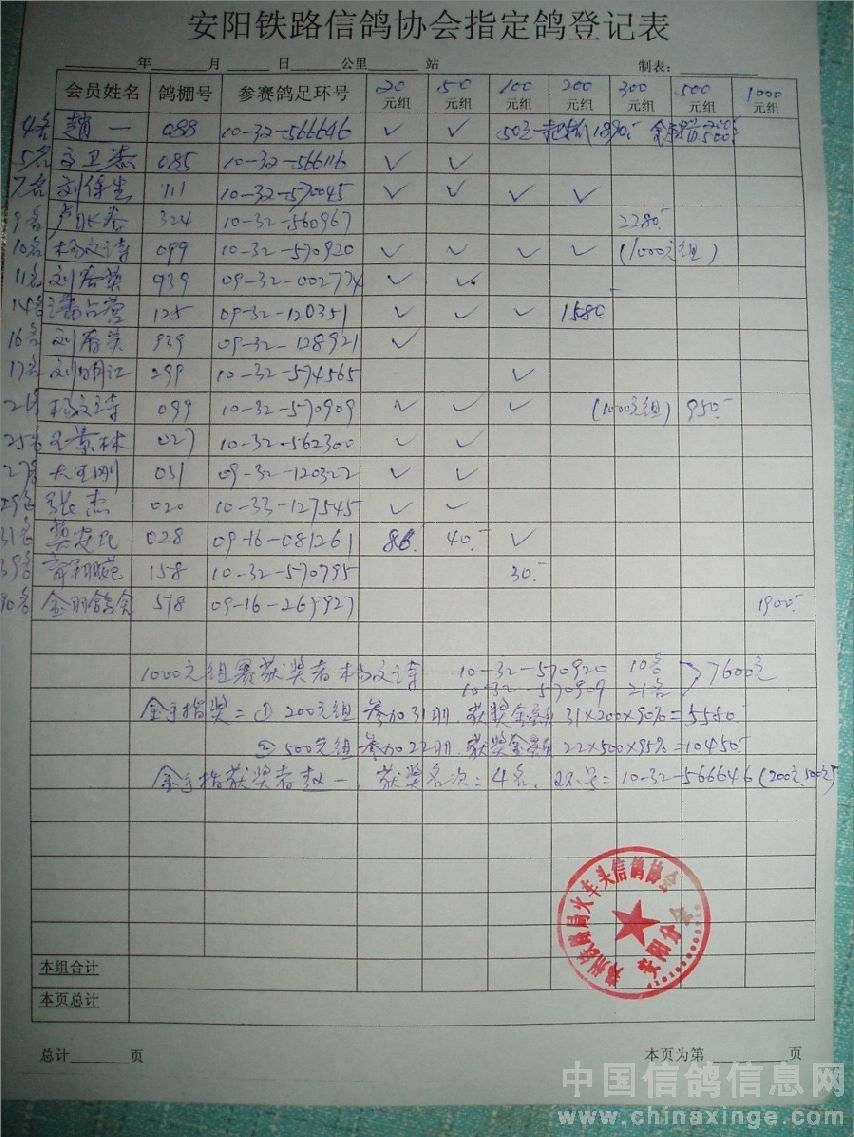 安阳铁路信鸽协会指定鸽登记表
年 月 日 公里 站 制表:
会员姓名 鸽棚号 参赛鸽足环号 20元组 50元组 100元组 200元组 300元组 500元组 1000元组
4名 赵一 088 10-32-566646 ✓ ✓ 50元一把抓1890.-
5名 卫 085 10-32-566116 ✓ ✓
7名 刘保生 111 10-32-570045 ✓ ✓ ✓ ✓
9名 卢 324 10-32-560967 2280.-
10名 杨文诗 099 10-32-570920 ✓ ✓ ✓ ✓ (1000元组)
11名 刘春英 939 09-32-002774 ✓ ✓
14名 占营 125 09-32-120351 ✓ ✓ ✓ 1580
16名 刘春英 939 09-32-128921 ✓
17名 刘明江 299 10-32-574565 ✓
21名 杨文诗 099 10-32-570909 ✓ ✓ ✓ (1000元组) 950.-
25名 王景林 027 10-32-562300 ✓ ✓
27名 刚 031 09-32-120322 ✓ ✓
29名 张杰 020 10-33-127545 ✓ ✓
31名 028 09-16-081261 86.- 40.- ✓
39名 158 10-32-570795 30.-
90名 金 鸽舍 578 09-16-269927 1900.-
1000元组赛获奖者杨文诗 10-32-570920 10名
10-32-570909 21名 7600元
金手指奖=① 200元组 参加31羽.获奖金额 31×200×90%=5580.-
② 500元组 参加22羽.获奖金额 22×500×95%=10450.-
金手指获奖者赵一.获奖名次=4名.环号=10-32-566646(200元,500元)
郑州铁路局火车头信鸽协会
安阳分会
本组合计
本页总计
总计 页 本页为第 页
中国信鸽信息网
www.chinaxinge.com